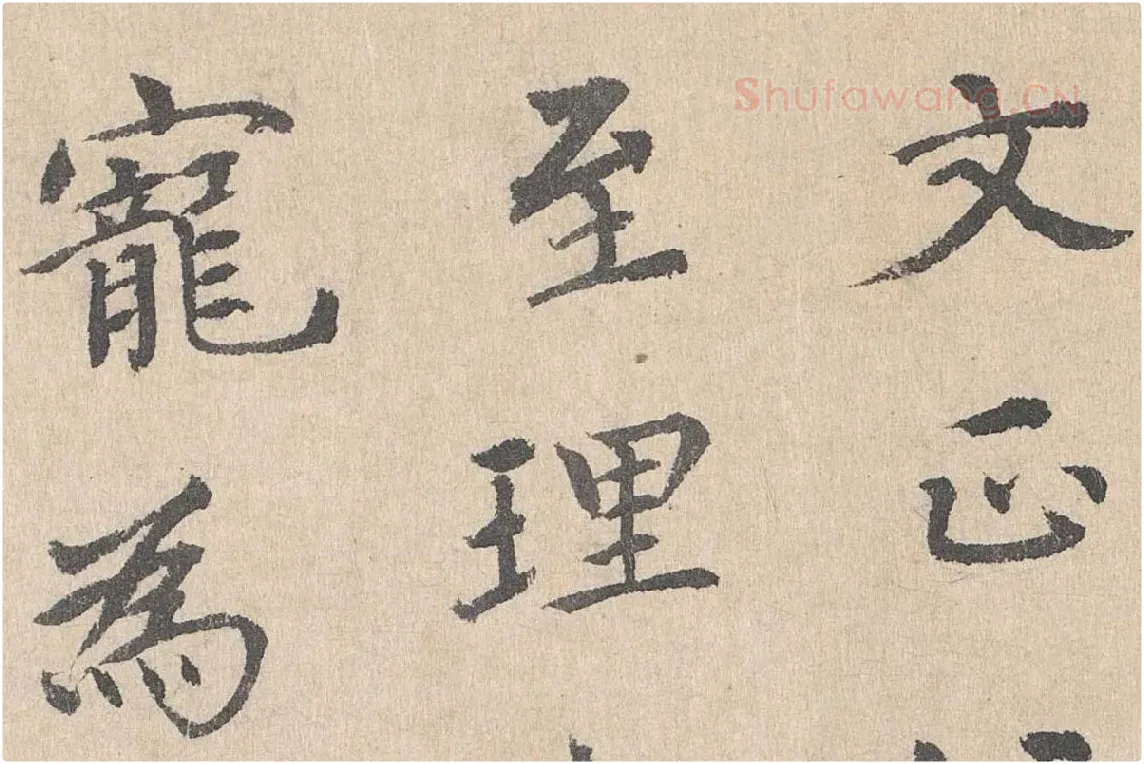 文正
至理
寵為
Shufawang.CN